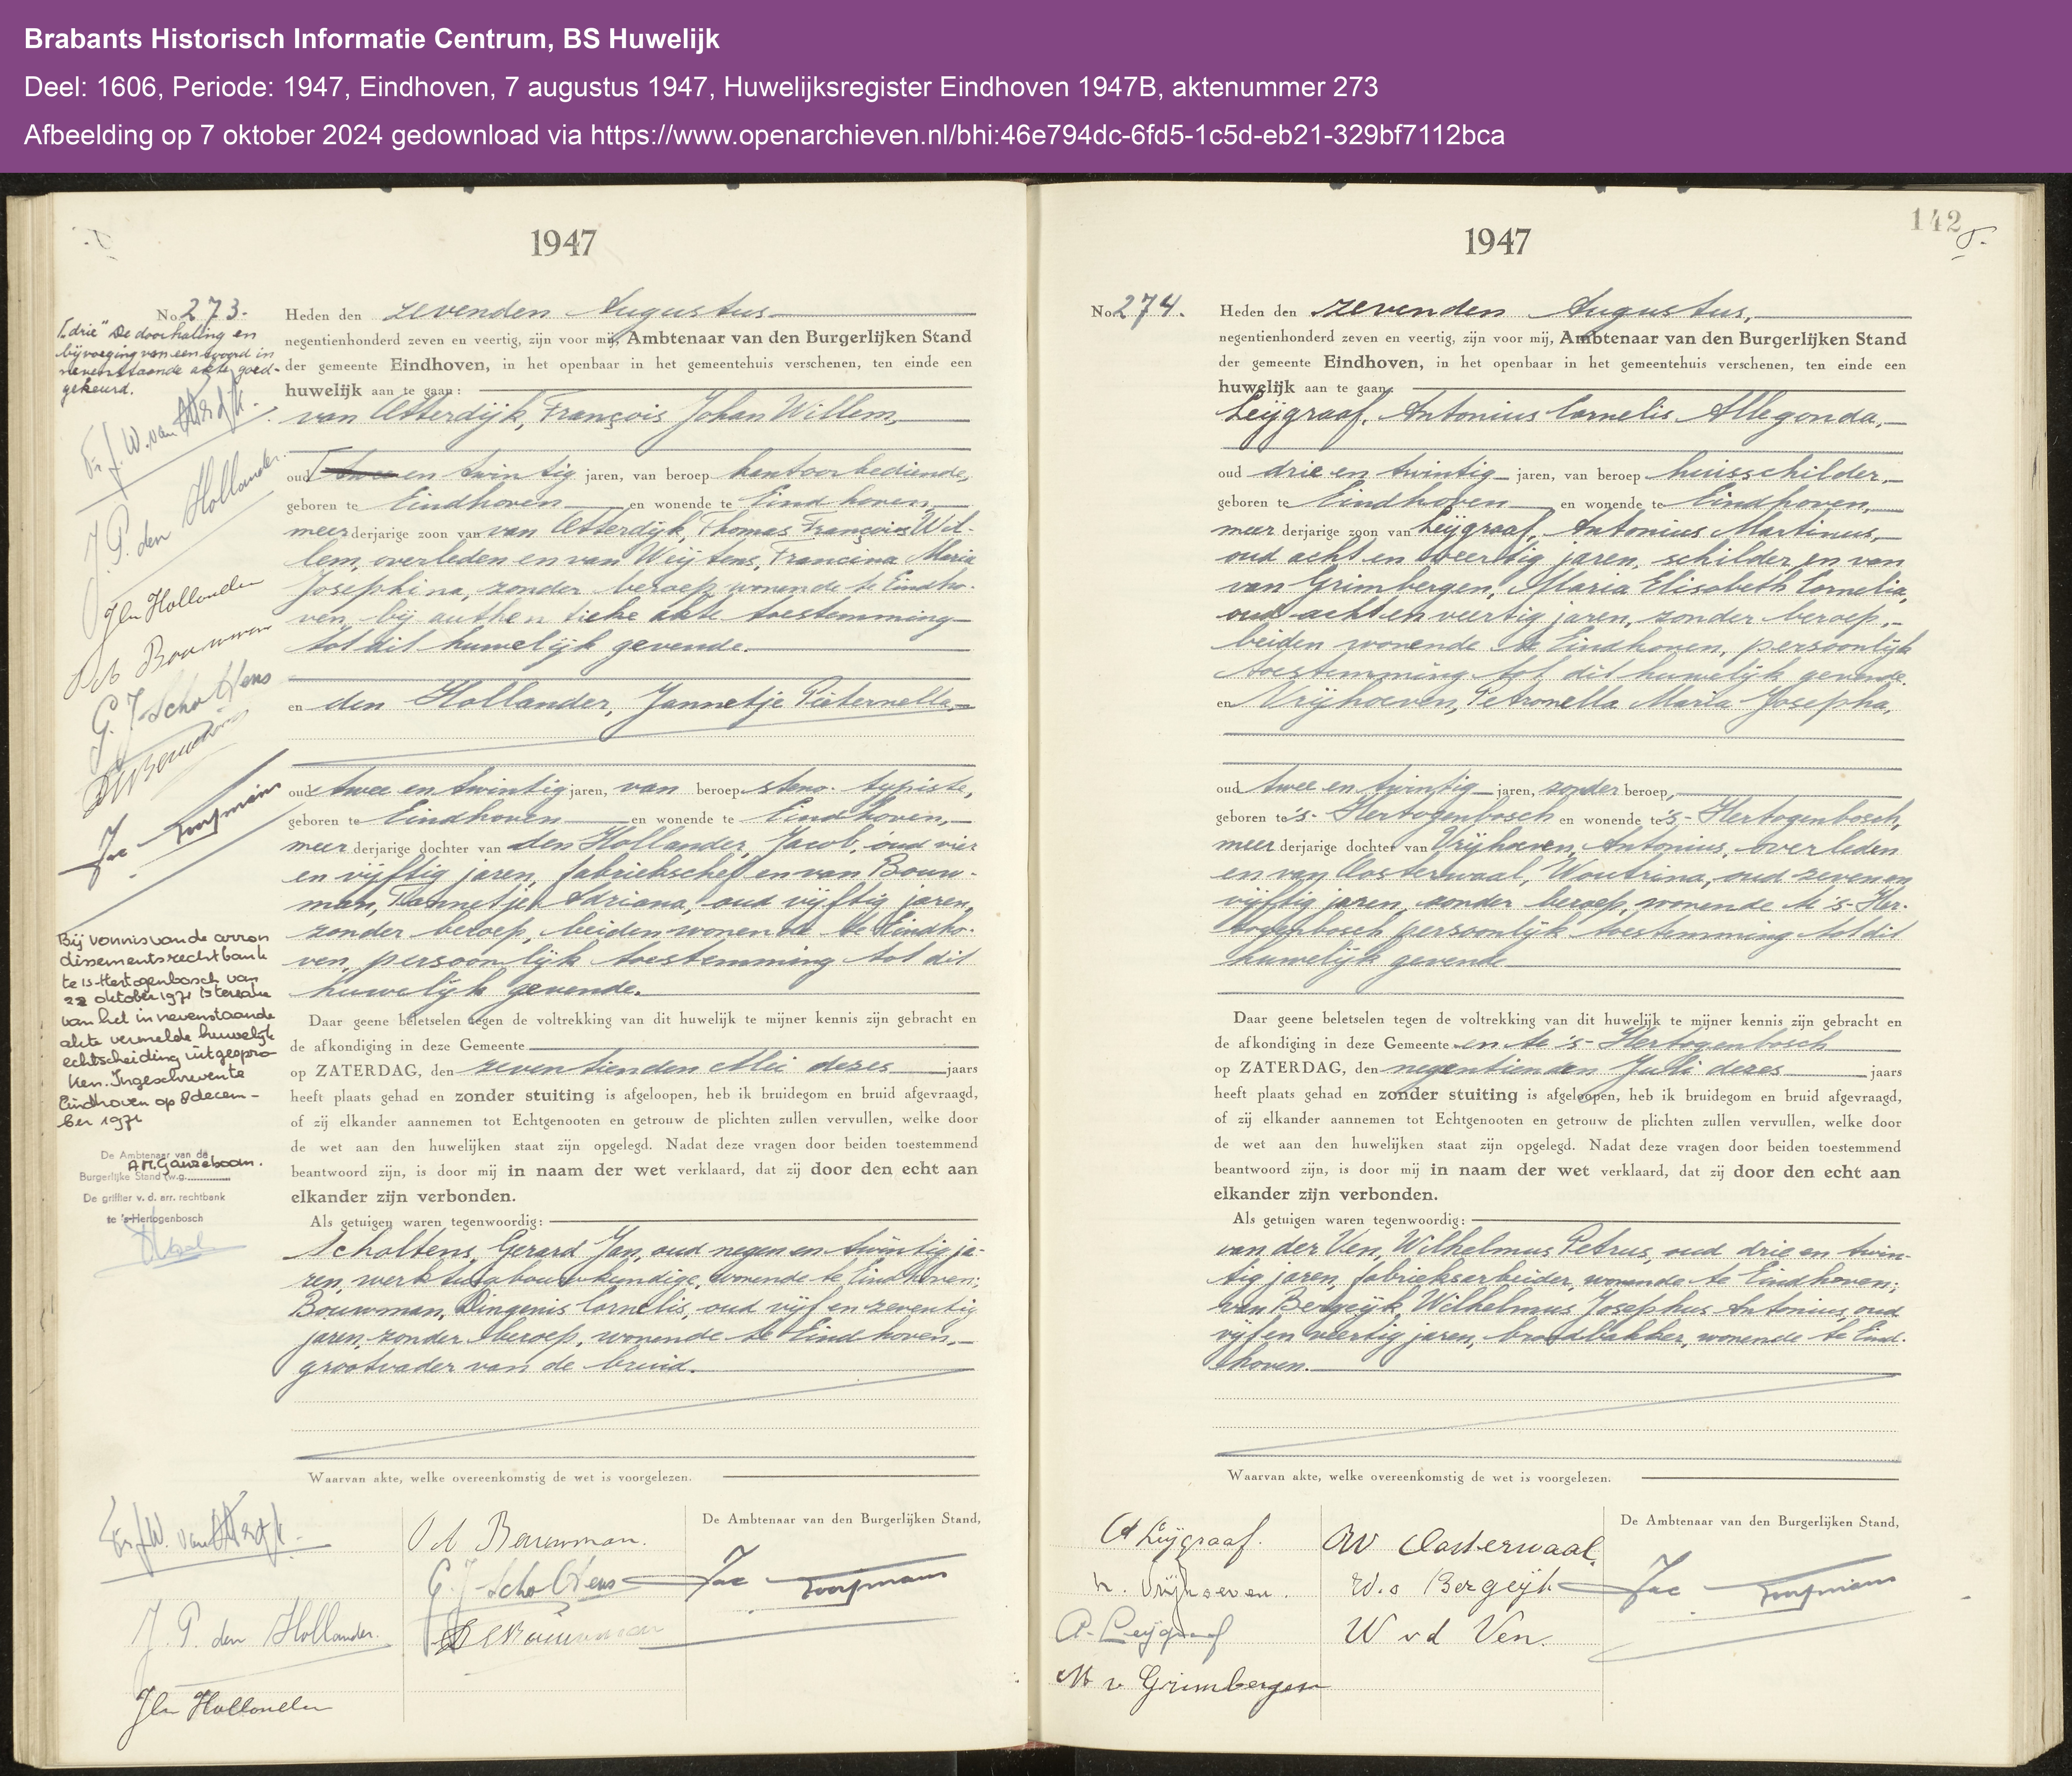 Brabants Historisch Informatie Centrum, BS Huwelijk
Deel: 1606, Periode: 1947, Eindhoven, 7 augustus 1947, Huwelijksregister Eindhoven 1947B, aktenummer 273
Afbeelding op 7 oktober 2024 gedownload via https://www.openarchieven.nl/bhi:46e794dc-6fd5-1c5d-eb21-329bf7112bca
1947
No 273.
"drie" De doorhaling en
bijvoeging van een woord in
nevenstaande akte goed-
gekeurd.
Fr. J. W. van Otterdijk.
J. P. den Hollander.
J den Hollander
Bouwman
G. J. Scholtens
D C Bouwman
Jac Koopmans
Bij vonnis van de arron
dissementsrechtbank
te 's-Hertogenbosch van
22 oktober 1971 is terzake
van het in nevenstaande
akte vermelde huwelijk
echtscheiding uitgespro
ken. Ingeschreven te
Eindhoven op 8 decem-
ber 1971
De Ambtenaar van de
A.M. Ganzeboom.
Burgerlijke Stand (w.g.
De griffier v. d. arr. rechtbank
te 's-Hertogenbosch
Heden den zevenden Augustus
negentienhonderd zeven en veertig, zijn voor mij, Ambtenaar van den Burgerlijken Stand
der gemeente Eindhoven, in het openbaar in het gemeentehuis verschenen, ten einde een
huwelijk aan te gaan:
van Otterdijk, François Johan Willem,
oud twee en twintig jaren, van beroep kantoorbediende,
geboren te Eindhoven en wonende te Eindhoven,
meerderjarige zoon van van Otterdijk, Thomas François Wil-
lem, overleden en van Weijtens, Francina Maria
Josephina, zonder beroep, wonende te Eindho-
ven, bij authentieke akte toestemming
tot dit huwelijk gevende.
en den Hollander, Jannetje Pieternella,
oud twee en twintig jaren, van beroep steno-typiste,
geboren te Eindhoven en wonende te Eindhoven,
meerderjarige dochter van den Hollander, Jacob, oud vier
en vijftig jaren, fabriekschef en van Bouw-
man, Adriana, oud vijftig jaren,
zonder beroep, beiden wonende te Eindho-
ven, persoonlijk toestemming tot dit
huwelijk gevende.
Daar geene beletselen tegen de voltrekking van dit huwelijk te mijner kennis zijn gebracht en
de afkondiging in deze Gemeente
op ZATERDAG, den zeventienden Mei dezes jaars
heeft plaats gehad en zonder stuiting is afgeloopen, heb ik bruidegom en bruid afgevraagd,
of zij elkander aannemen tot Echtgenooten en getrouw de plichten zullen vervullen, welke door
de wet aan den huwelijken staat zijn opgelegd. Nadat deze vragen door beiden toestemmend
beantwoord zijn, is door mij in naam der wet verklaard, dat zij door den echt aan
elkander zijn verbonden.
Als getuigen waren tegenwoordig:
Scholtens, Gerard Jan, oud negen en twintig ja-
ren, werktuigbouwkundige, wonende te Eindhoven;
Bouwman, Dingenis Cornelis, oud vijf en zeventig
jaren, zonder beroep, wonende te Eindhoven,
grootvader van de bruid.
Waarvan akte, welke overeenkomstig de wet is voorgelezen.
Fr. J. W. van Otterdijk.
J. P. den Hollander.
J den Hollander
Bouwman.
G. J. Scholtens
D C Bouwman
De Ambtenaar van den Burgerlijken Stand,
Jac Koopmans
142
1947
No 274.
Heden den zevenden Augustus,
negentienhonderd zeven en veertig, zijn voor mij, Ambtenaar van den Burgerlijken Stand
der gemeente Eindhoven, in het openbaar in het gemeentehuis verschenen, ten einde een
huwelijk aan te gaan:
Leijgraaf, Antonius Cornelis Allegonda,
oud drie en twintig jaren, van beroep huisschilder,
geboren te Eindhoven en wonende te Eindhoven,
meerderjarige zoon van Leijgraaf, Antonius Martinus,
oud acht en veertig jaren, schilder en van
van Grimbergen, Maria Elisabeth Cornelia,
oud acht en veertig jaren, zonder beroep,
beiden wonende te Eindhoven, persoonlijk
toestemming tot dit huwelijk gevende.
en Vrijhoeven, Petronella Maria Josepha,
oud twee en twintig jaren, zonder beroep,
geboren te 's-Hertogenbosch en wonende te 's-Hertogenbosch,
meerderjarige dochter van Vrijhoeven, Antonius, overleden
en van Oosterwaal, Woutrina, oud zeven en
vijftig jaren, zonder beroep, wonende te 's-Her-
togenbosch persoonlijk toestemming tot dit
huwelijk gevende
Daar geene beletselen tegen de voltrekking van dit huwelijk te mijner kennis zijn gebracht en
de afkondiging in deze Gemeente en te 's-Hertogenbosch
op ZATERDAG, den negentienden Juli dezes jaars
heeft plaats gehad en zonder stuiting is afgeloopen, heb ik bruidegom en bruid afgevraagd,
of zij elkander aannemen tot Echtgenooten en getrouw de plichten zullen vervullen, welke door
de wet aan den huwelijken staat zijn opgelegd. Nadat deze vragen door beiden toestemmend
beantwoord zijn, is door mij in naam der wet verklaard, dat zij door den echt aan
elkander zijn verbonden.
Als getuigen waren tegenwoordig:
van der Ven, Wilhelmus Petrus, oud drie en twin-
tig jaren, fabrieksarbeider, wonende te Eindhoven;
van Bergeijk, Wilhelmus Josephus Antonius, oud
vijf en veertig jaren, broodbakker, wonende te Eind-
hoven.
Waarvan akte, welke overeenkomstig de wet is voorgelezen.
A Leijgraaf.
Vrijhoeven.
A. Leijgraaf
M v Grimbergen
W Oosterwaal
W. v Bergeijk
W v d Ven.
De Ambtenaar van den Burgerlijken Stand,
Jac Koopmans